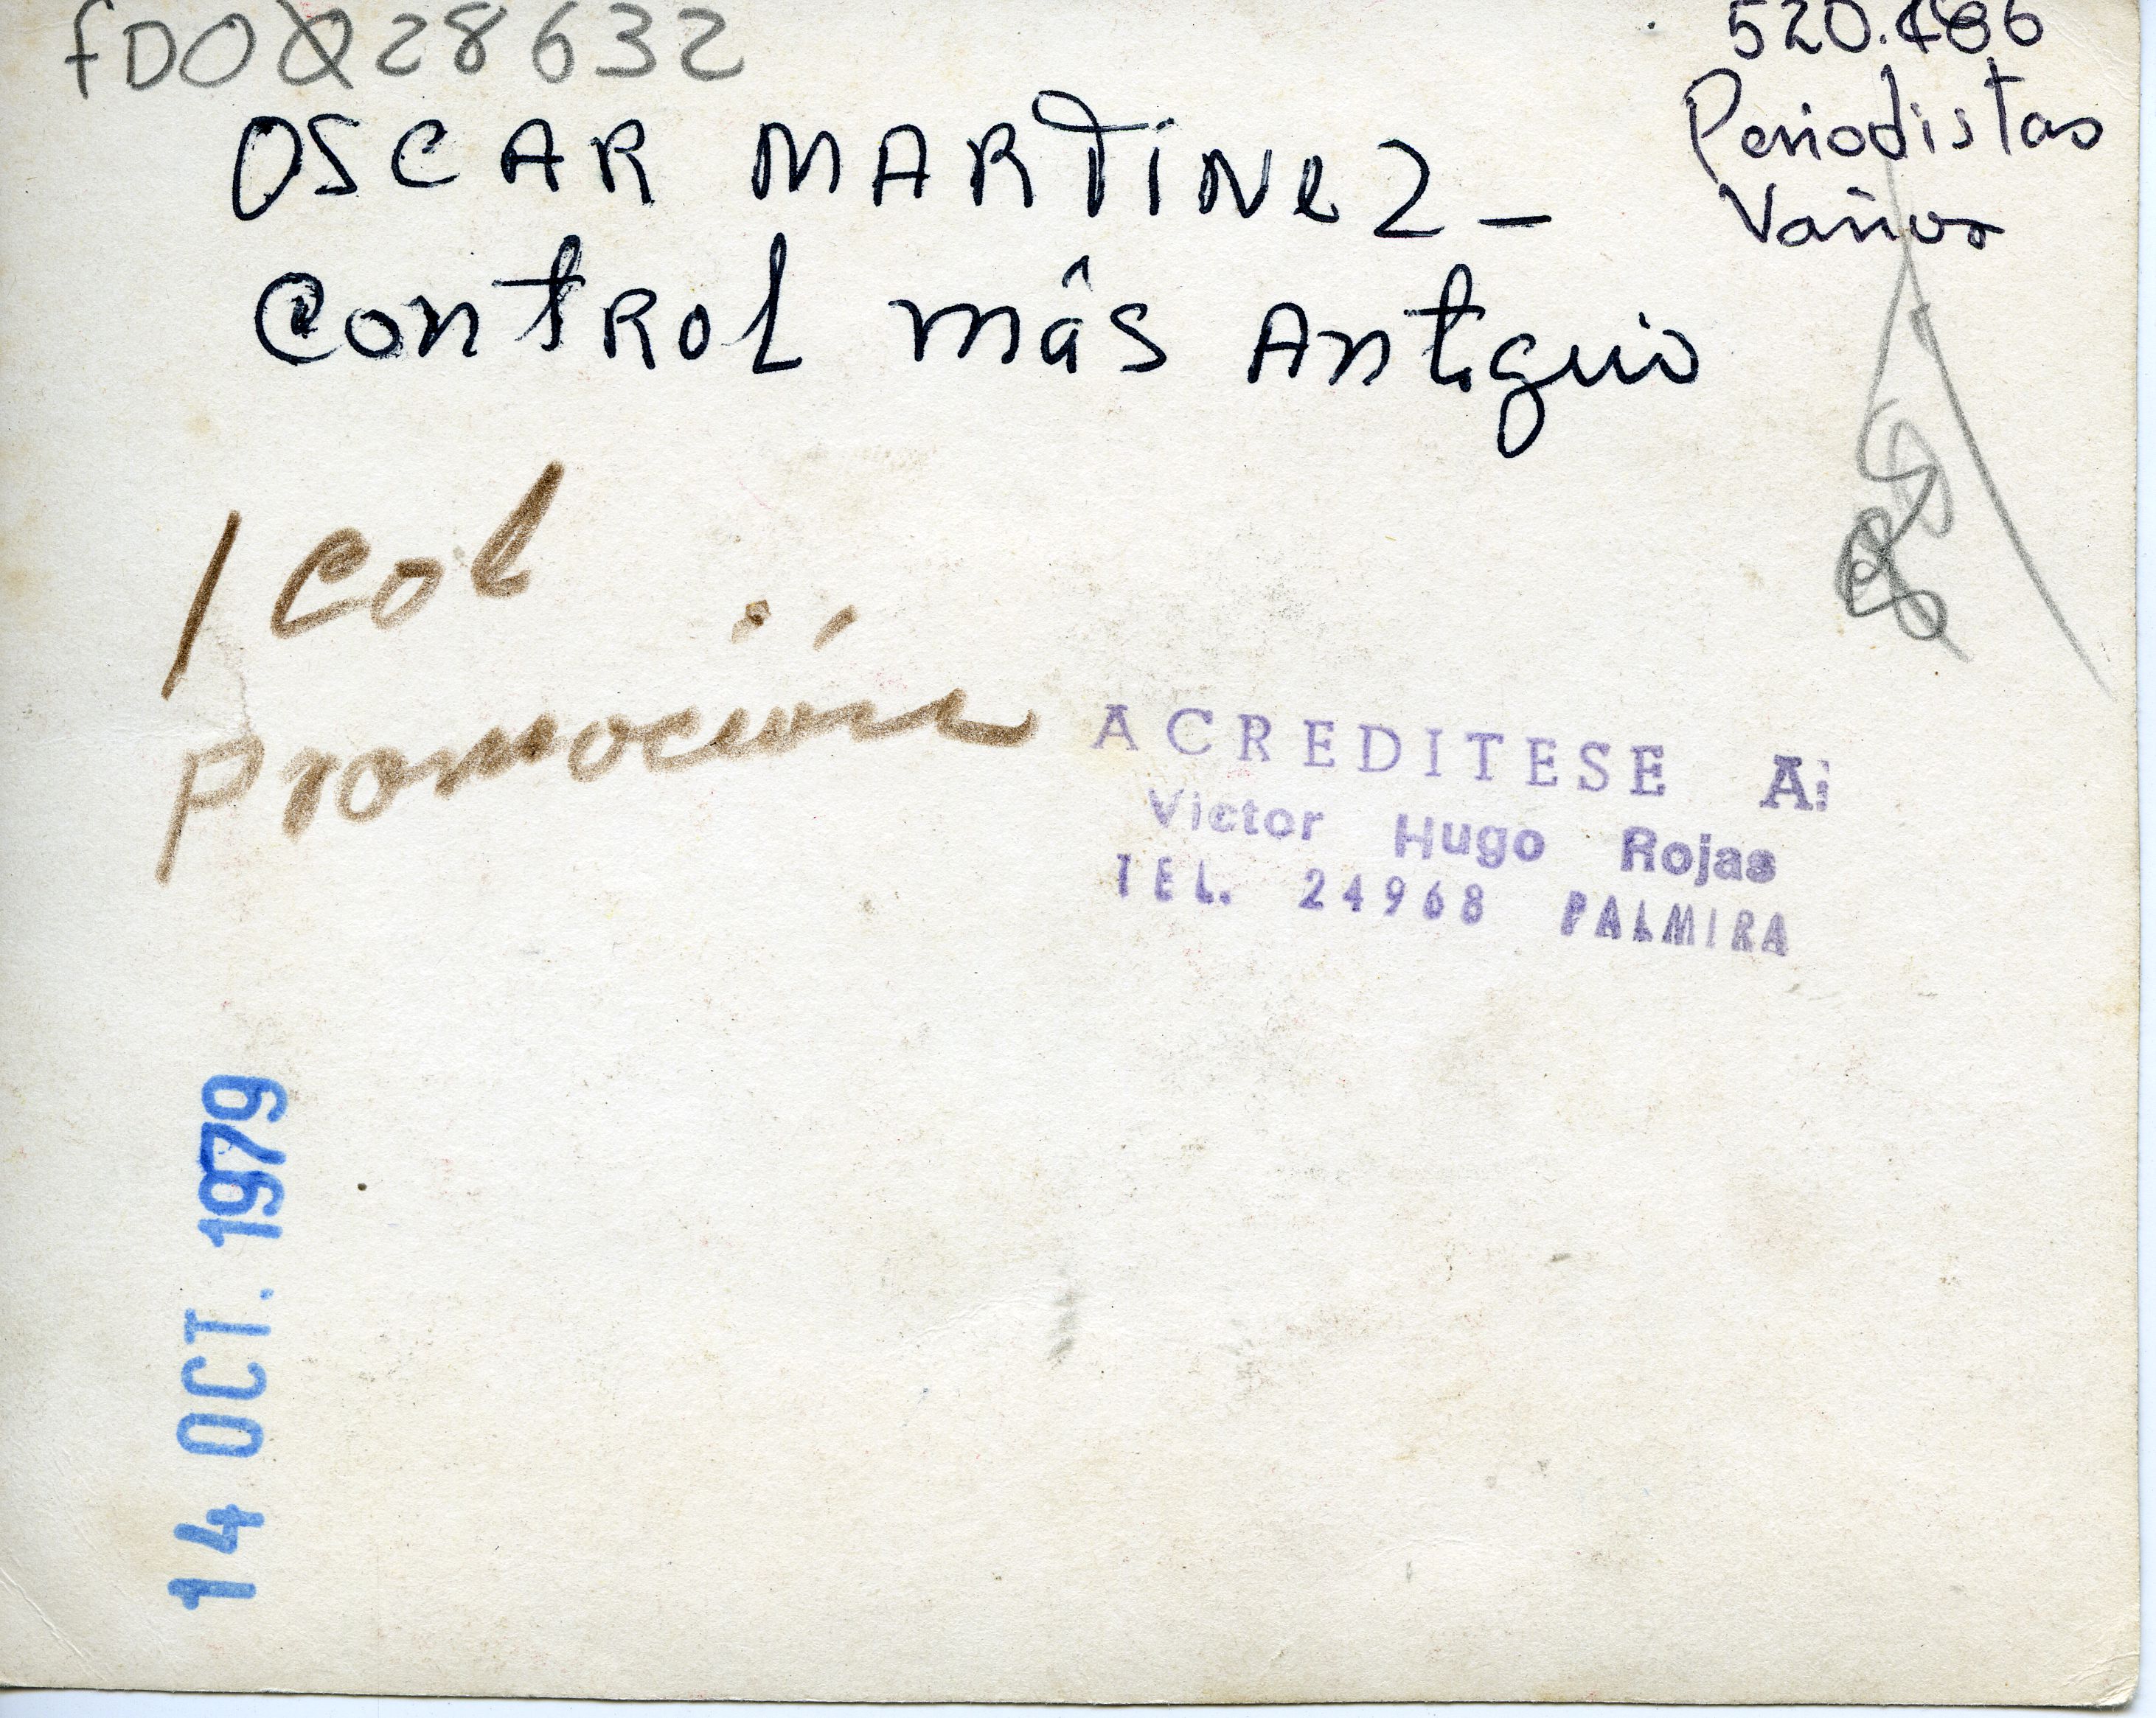 fDO028632
520.486
Periodistas
Varios
OSCAR MARTÍNeZ -
Control más Antiguo
1 Col
Promoción
ACREDITESE A:
Victor Hugo Rojas
TEL. 24968 PALMIRA
14 OCT. 1979